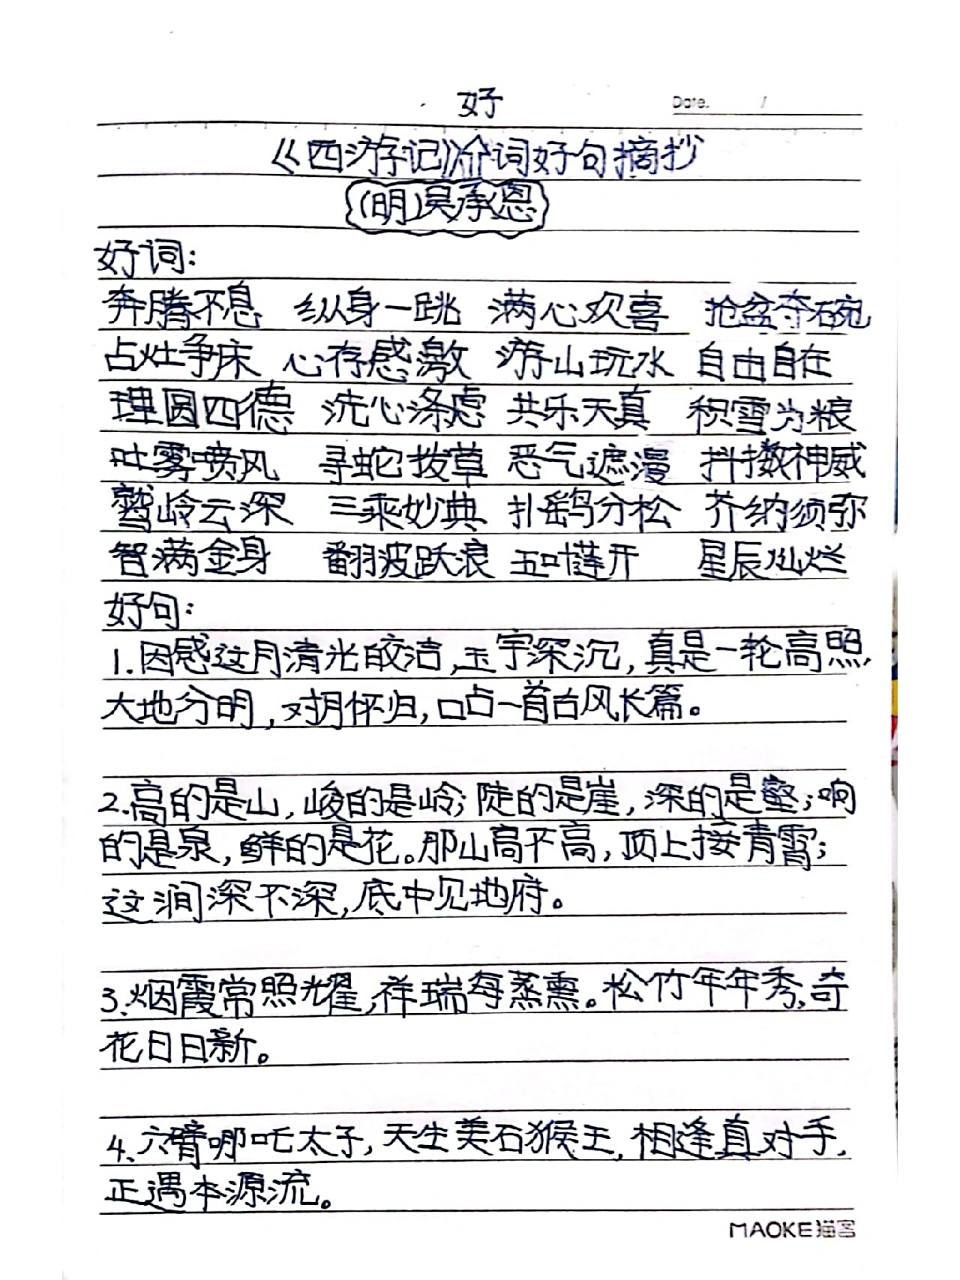 好
Date. /
《西游记》好词好句摘抄
(明)吴承恩
好词:
奔腾不息 纵身一跳 满心欢喜 抢盆夺碗
占灶争床 心存感激 游山玩水 自由自在
理圆四德 洗心涤虑 共乐天真 积雪为粮
吐雾喷风 寻蛇拨草 恶气遮漫 抖擞神威
鹫岭云深 三乘妙典 扑鹞分松 芥纳须弥
智满金身 翻波跃浪 五叶莲开 星辰灿烂
好句:
1.因感这月清光皎洁,玉宇深沉,真是一轮高照,
大地分明,对月怀归,口占一首古风长篇。
2.高的是山,峻的是岭;陡的是崖,深的是壑;响
的是泉,鲜的是花。那山高不高,顶上接青霄;
这涧深不深,底中见地府。
3.烟霞常照耀,祥瑞每蒸熏。松竹年年秀,奇
花日日新。
4.六臂哪吒太子,天生美石猴王,相逢真对手,
正遇本源流。
MAOKE猫客